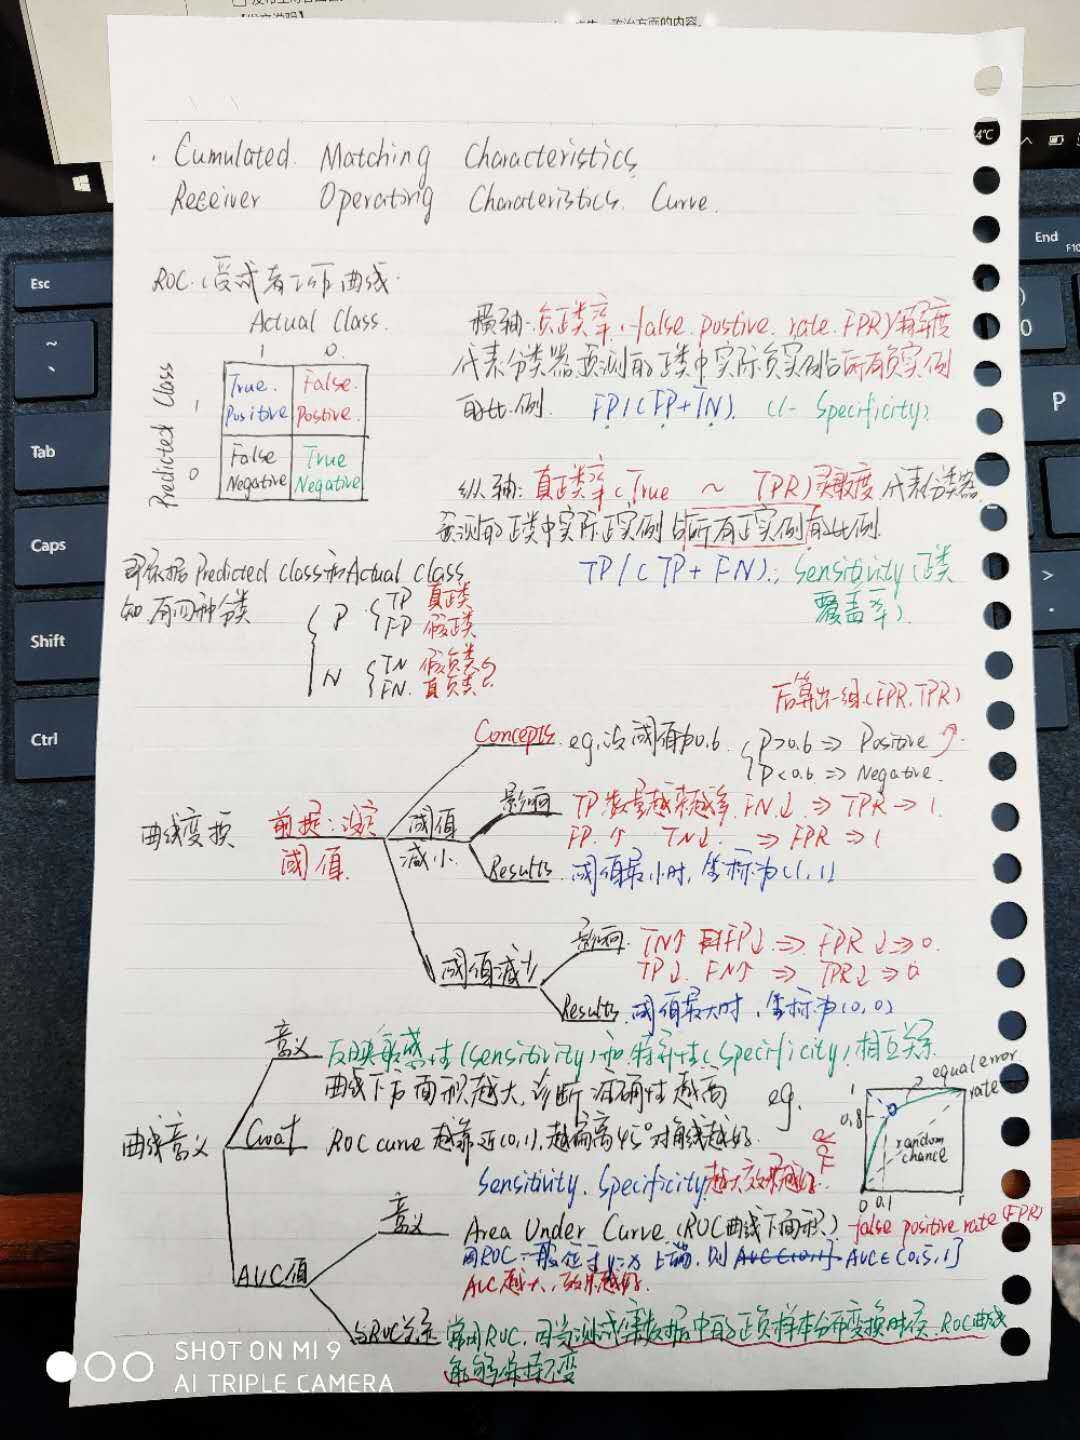 政治方面的内容。
Cumulated Matching Characteristics
Receiver Operating Charateristics Curve.
ROC(受试者工作曲线
Actual Class.
1 0.
Predicted Class
1
0
True. Positive
False. Postive.
False Negative
True Negative
横轴:负正类率(false postive rate FPR)
代表分类器预测的正类中实际负实例占所有负实例
的比例. FP/(FP+TN). (1- Specificity)
纵轴:真正类率(True ~ TPR)灵敏度 代表分类器
预测的正类中实际正实例占所有正实例的比例.
TP/(TP+FN).; Sensitivity(正类
覆盖率)
即依据Predicted Class和Actual Class
有四种分类
P TP 真正类
FP 假正类
N TN 假负类
FN. 真负类
?
后算出一组(FPR,TPR)
曲线变换
前提:设定
阈值.
Concepts. eg,设阈值为0.6. P>0.6 => Positive
P<0.6 => Negative.
阈值
减小.
影响 TP数量越来越 FN↓ => TPR → 1.
FP. ↑ TN↓. => FPR => 1
Results 阈值最小时,坐标为(1,1)
阈值减少
影响. TN↑ FP↓ => FPR ↓ => 0.
TP↓ FN↑ => TPR↓ => 0
Results 阈值最大时,坐标为(0,0)
曲线意义
意义 反映敏感性(Sensitivity)和特异性(Specificity)相互关系
曲线下方面积越大,诊断准确性越高
ROC curve 越靠近(0,1),越偏离45°对角线越好.
Sensitivity. Specificity越大效果越好.
eg.
equal error
rate
1
0.8
random
chance
0 0.1 1
false positive rate (FPR)
AUC值
意义 Area Under Curve.(ROC曲线下面积)
因ROC一般位于y=x上端,则 AUC∈(0,1] AUC∈(0.5,1]
AUC越大,效果越好.
与ROC关系 常用ROC,因当测试集数据中的正负样本分布变换时候,ROC曲线
能够保持不变
Esc
~
`
Tab
Caps
Shift
Ctrl
End
F10
)
0
P
>
.
4℃
SHOT ON MI 9
AI TRIPLE CAMERA